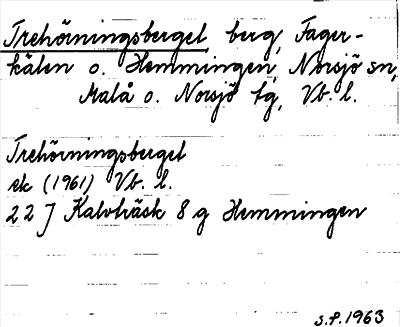 Trehörningsberget berg, Fager-
hälen o. Hemmingen, Norsjö sn,
Malå o. Norsjö tg, Vb. l.
Trehörningsberget
ek (1961) Vb. l.
22 J Kalvträsk 8 g Hemmingen
S.P. 1963